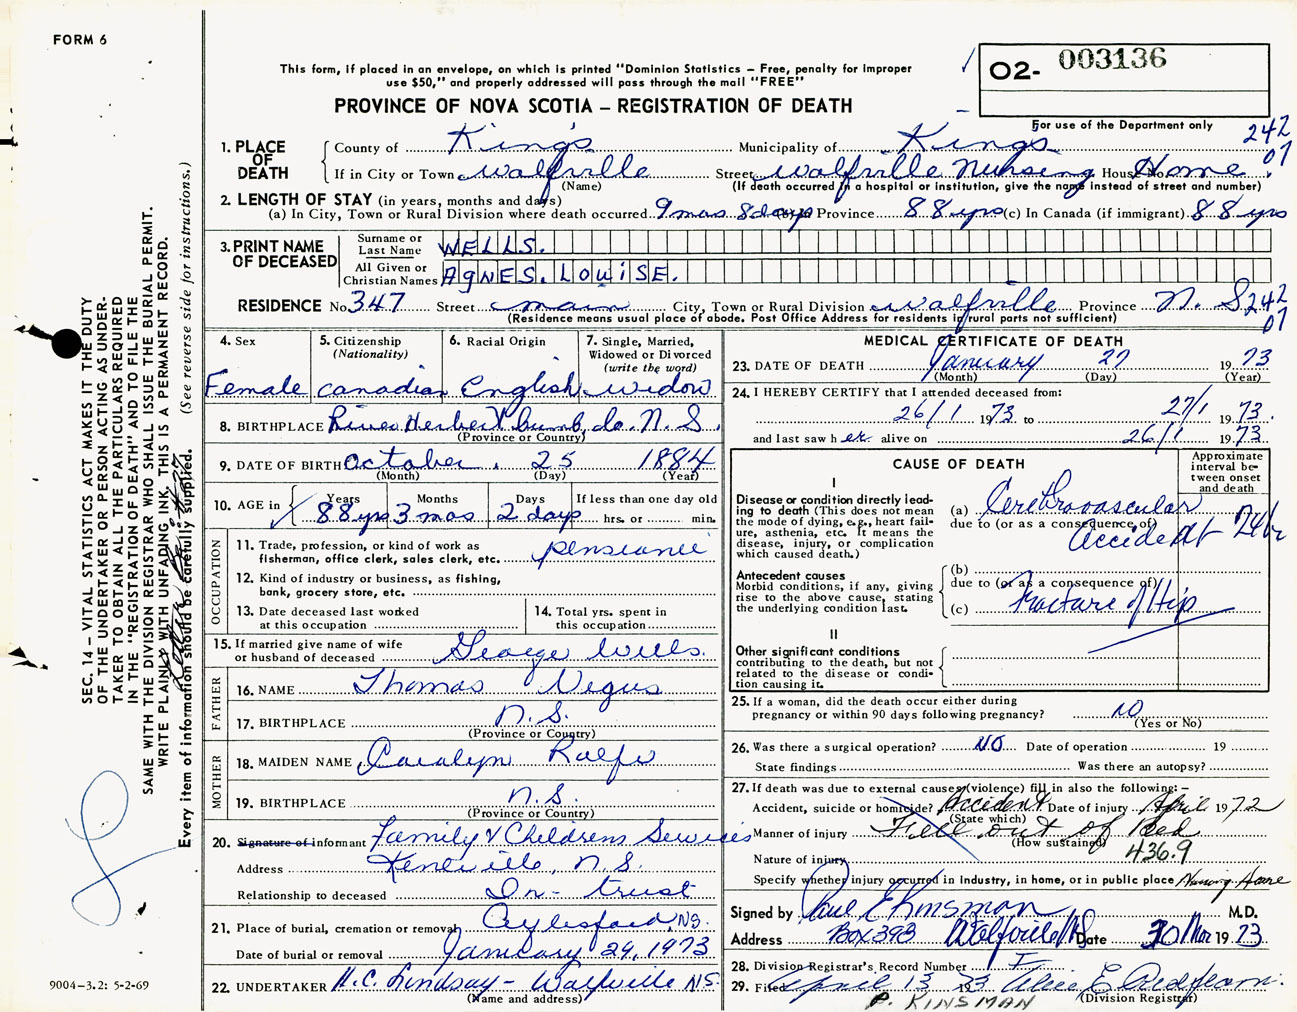 FORM 6
This form, if placed in an envelope, on which is printed "Dominion Statistics – Free, penalty for improper
use $50," and properly addressed will pass through the mail "FREE"
PROVINCE OF NOVA SCOTIA – REGISTRATION OF DEATH
O2- 003136
For use of the Department only
242
07
1. PLACE OF DEATH
County of Kings Municipality of Kings
If in City or Town Wolfville Street Wolfville Nursing House No. Home
(Name) (If death occurred in a hospital or institution, give the name instead of street and number)
2. LENGTH OF STAY (in years, months and days)
(a) In City, Town or Rural Division where death occurred 9 mos 8 days Province 88 yrs (c) In Canada (if immigrant) 88 yrs
3. PRINT NAME OF DECEASED
Surname or Last Name WELLS.
All Given or Christian Names AGNES. LOUISE.
RESIDENCE No 347 Street main City, Town or Rural Division Wolfville Province N. S
242
07
(Residence means usual place of abode. Post Office Address for residents in rural parts not sufficient)
4. Sex
Female
5. Citizenship (Nationality)
Canadian
6. Racial Origin
English
7. Single, Married, Widowed or Divorced (write the word)
widow
8. BIRTHPLACE River Herbert Cumb. Co. N. S.
(Province or Country)
9. DATE OF BIRTH October 25 1884
(Month) (Day) (Year)
10. AGE in Years Months Days If less than one day old
88 yrs 3 mos 2 days hrs. or min.
OCCUPATION
11. Trade, profession, or kind of work as
fisherman, office clerk, sales clerk, etc. pensioner
12. Kind of industry or business, as fishing,
bank, grocery store, etc.
13. Date deceased last worked
at this occupation
14. Total yrs. spent in
this occupation
15. If married give name of wife
or husband of deceased George Wells.
FATHER
16. NAME Thomas Negus
17. BIRTHPLACE N.S.
(Province or Country)
MOTHER
18. MAIDEN NAME Caralyn Rolfe
19. BIRTHPLACE N.S.
(Province or Country)
20. Signature of informant Family & Childrens Services
Address Kentville, N.S.
Relationship to deceased In - trust
21. Place of burial, cremation or removal Aylesford, NS.
Date of burial or removal January 29, 1973
22. UNDERTAKER H.C. Lindsay - Wolfville N.S.
(Name and address)
MEDICAL CERTIFICATE OF DEATH
23. DATE OF DEATH January 27 1973
(Month) (Day) (Year)
24. I HEREBY CERTIFY that I attended deceased from:
26/1 1973 to 27/1 1973.
and last saw her alive on 26/1 1973
CAUSE OF DEATH
Approximate interval between onset and death
I
Disease or condition directly lead-
ing to death (This does not mean
the mode of dying, e.g., heart fail-
ure, asthenia, etc. It means the
disease, injury, or complication
which caused death.)
(a) Cerebrovascular
due to (or as a consequence of)
Accident 24 hr
Antecedent causes
Morbid conditions, if any, giving
rise to the above cause, stating
the underlying condition last.
(b)
due to (or as a consequence of)
(c) Fracture of Hip
II
Other significant conditions
contributing to the death, but not
related to the disease or condi-
tion causing it.
25. If a woman, did the death occur either during
pregnancy or within 90 days following pregnancy? NO
(Yes or No)
26. Was there a surgical operation? NO Date of operation 19
State findings Was there an autopsy?
27. If death was due to external causes (violence) fill in also the following:–
Accident, suicide or homicide? Accident Date of injury April 1972
(State which)
Manner of injury Fell out of Bed
(How sustained)
436.9
Nature of injury
Specify whether injury occurred in industry, in home, or in public place Nursing Home
Signed by Paul E Kinsman M.D.
Address Box 393 Wolfville NS Date 30 Mar 1973
28. Division Registrar's Record Number
29. Filed April 13 1973
(Division Registrar)
P. KINSMAN
SEC. 14 – VITAL STATISTICS ACT MAKES IT THE DUTY
OF THE UNDERTAKER OR PERSON ACTING AS UNDER-
TAKER TO OBTAIN ALL THE PARTICULARS REQUIRED
IN THE "REGISTRATION OF DEATH" AND TO FILE THE
SAME WITH THE DIVISION REGISTRAR WHO SHALL ISSUE THE BURIAL PERMIT.
WRITE PLAINLY WITH UNFADING INK. THIS IS A PERMANENT RECORD.
Every item of information should be carefully supplied. (See reverse side for instructions.)
9004-3.2: 5-2-69